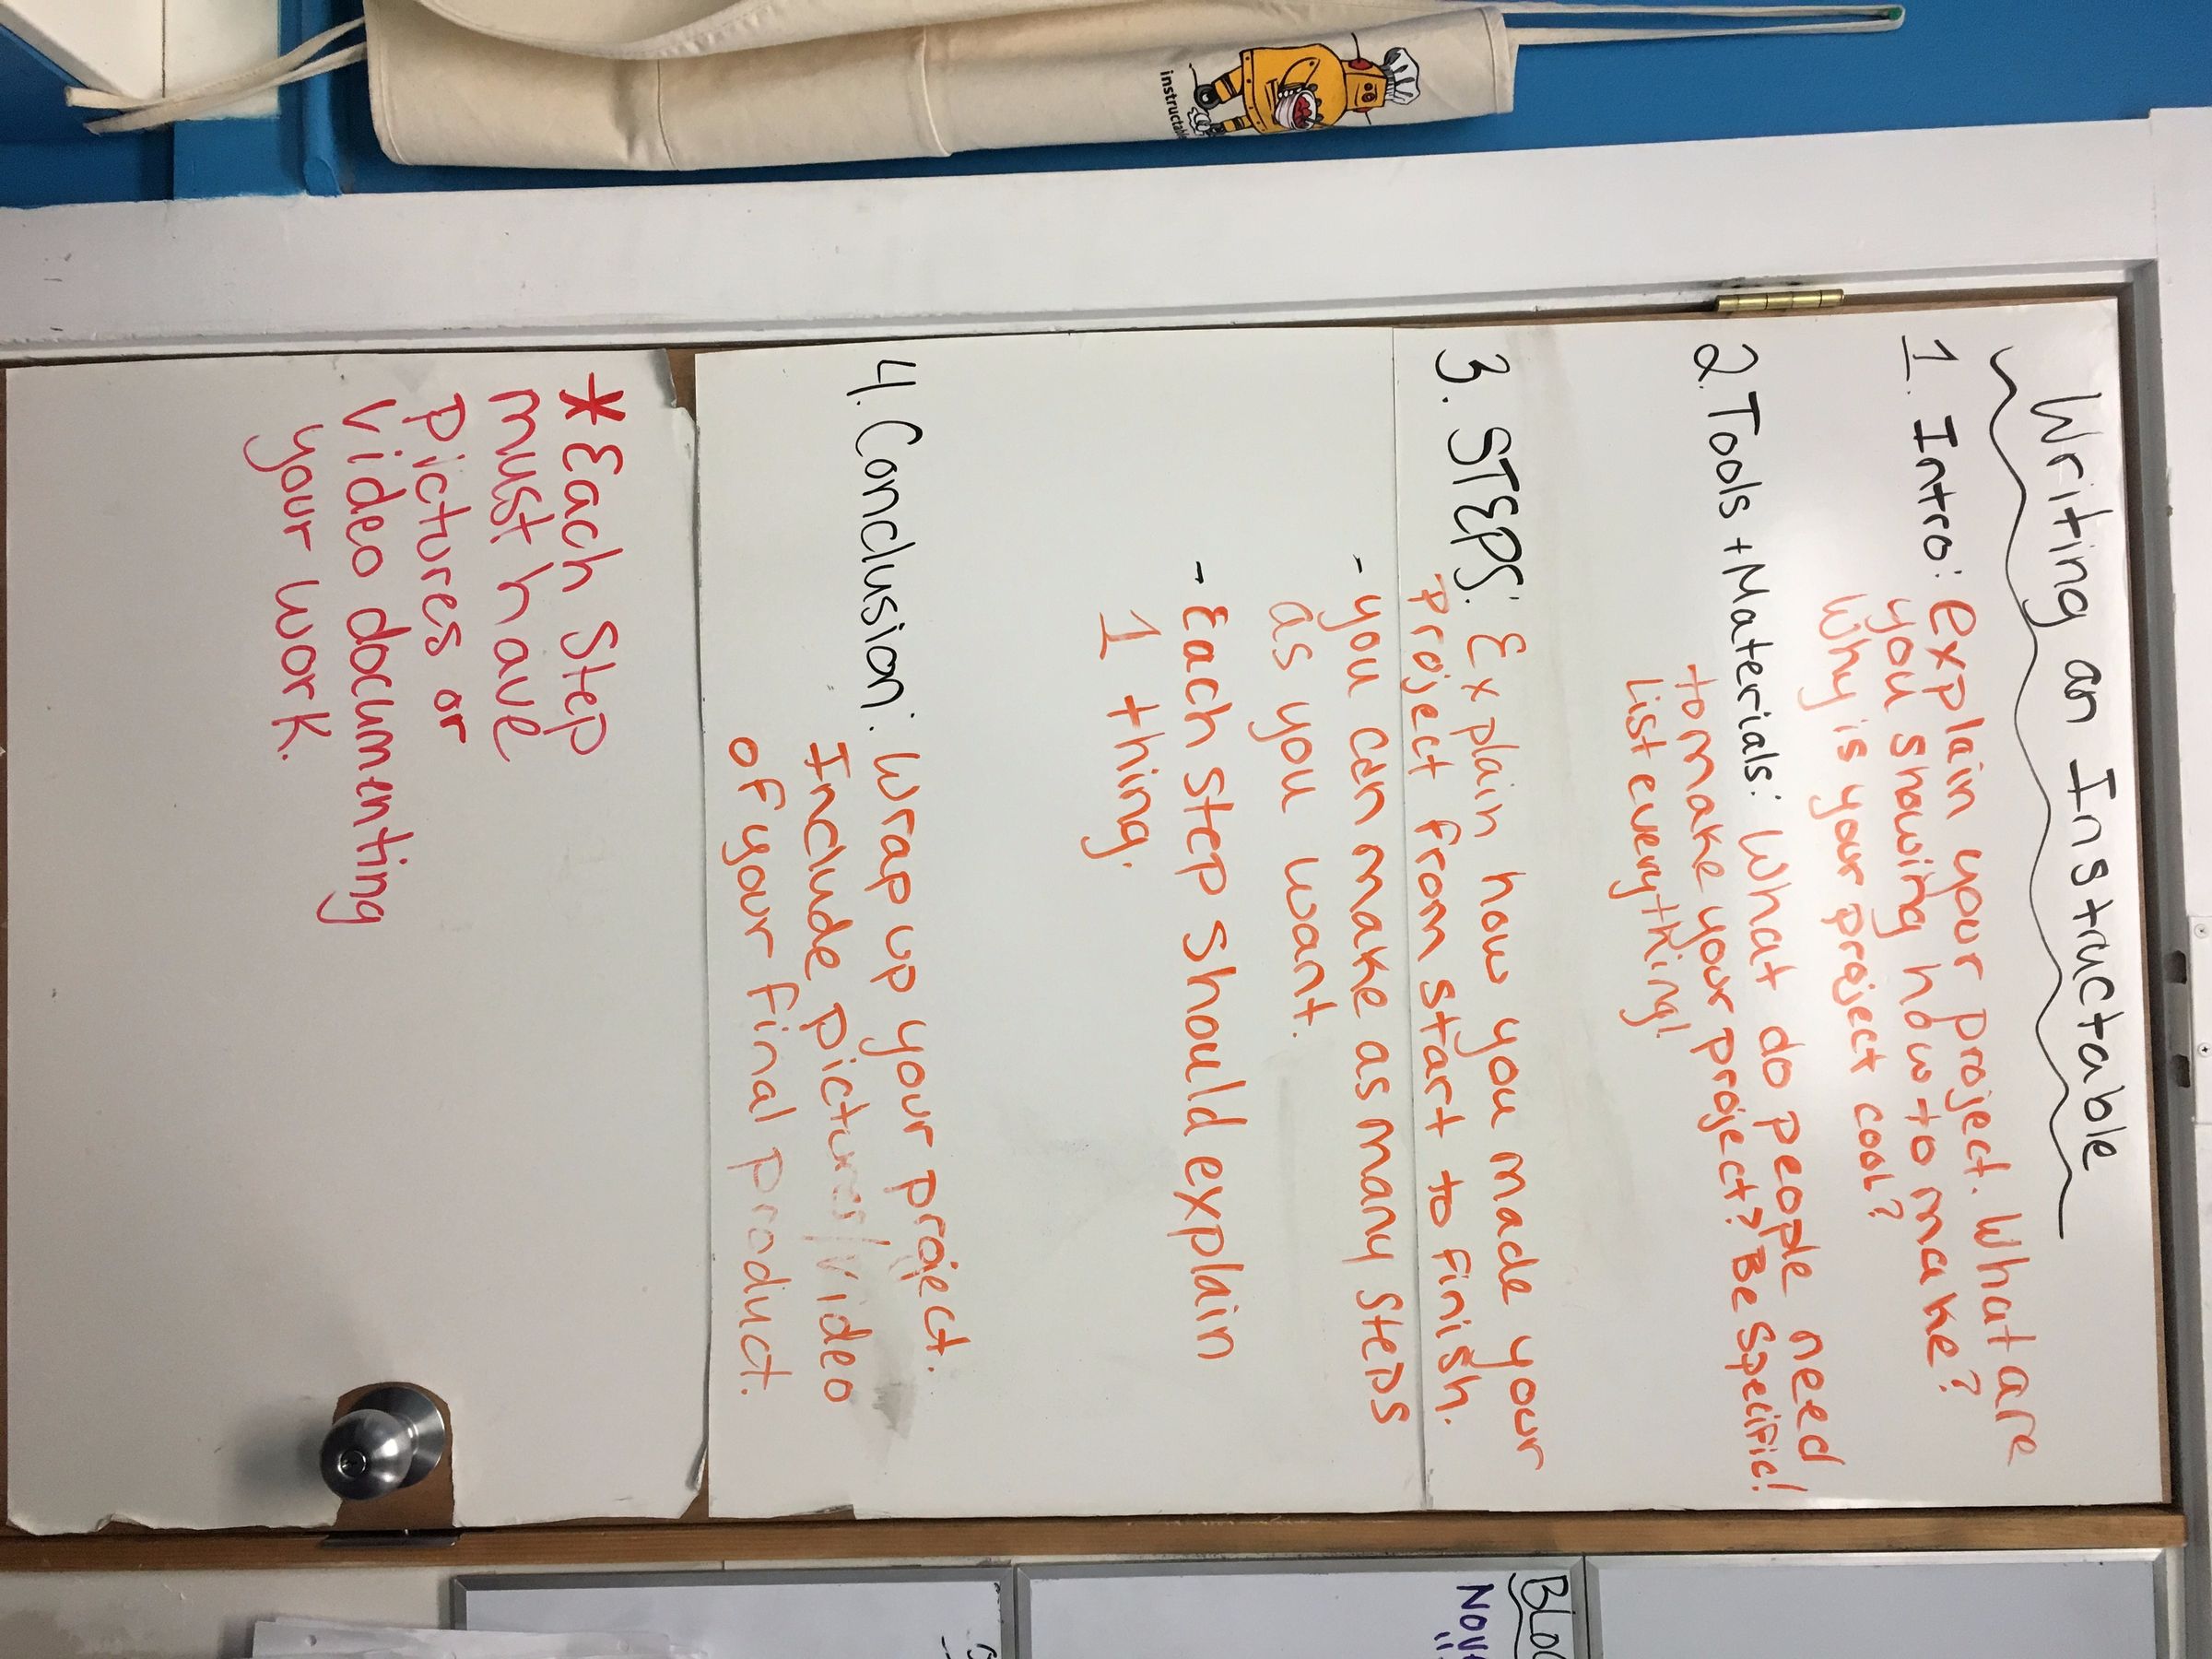 Writing an Instructable
1. Intro: Explain your project. What are
you showing how to make?
Why is your project cool?
2. Tools + Materials: What do people need
to make your project? Be specific!
List everything!
3. STEPS: Explain how you made your
project from start to finish.
- you can make as many steps
as you want.
- Each step should explain
1 thing.
4. Conclusion: Wrap up your project.
Include pictures/video
of your final product.
* Each step
must have
pictures or
video documenting
your work.